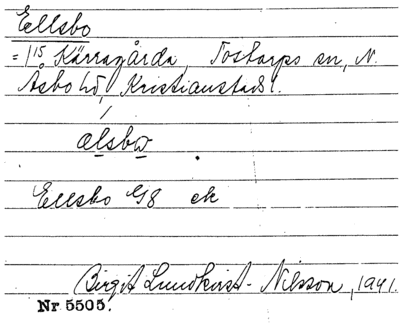 Ellsbo
= 1/15 Kärragårda, Tostarps sn, N.
Åsbo hd, Kristianstads l.
ælsbo
Ellsbo G8 ek
Birgit Lundkvist-Nilsson, 1941.
Nr 5505.